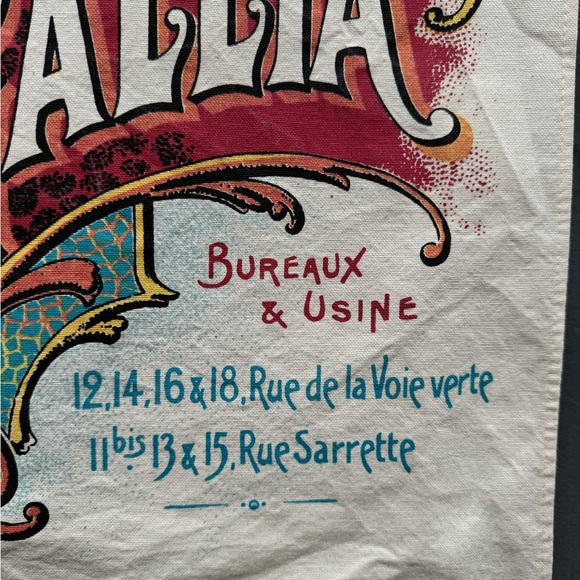 ALLIA
BUREAUX
& USINE
12,14,16 & 18, Rue de la Voie verte
11bis 13 & 15, Rue Sarrette